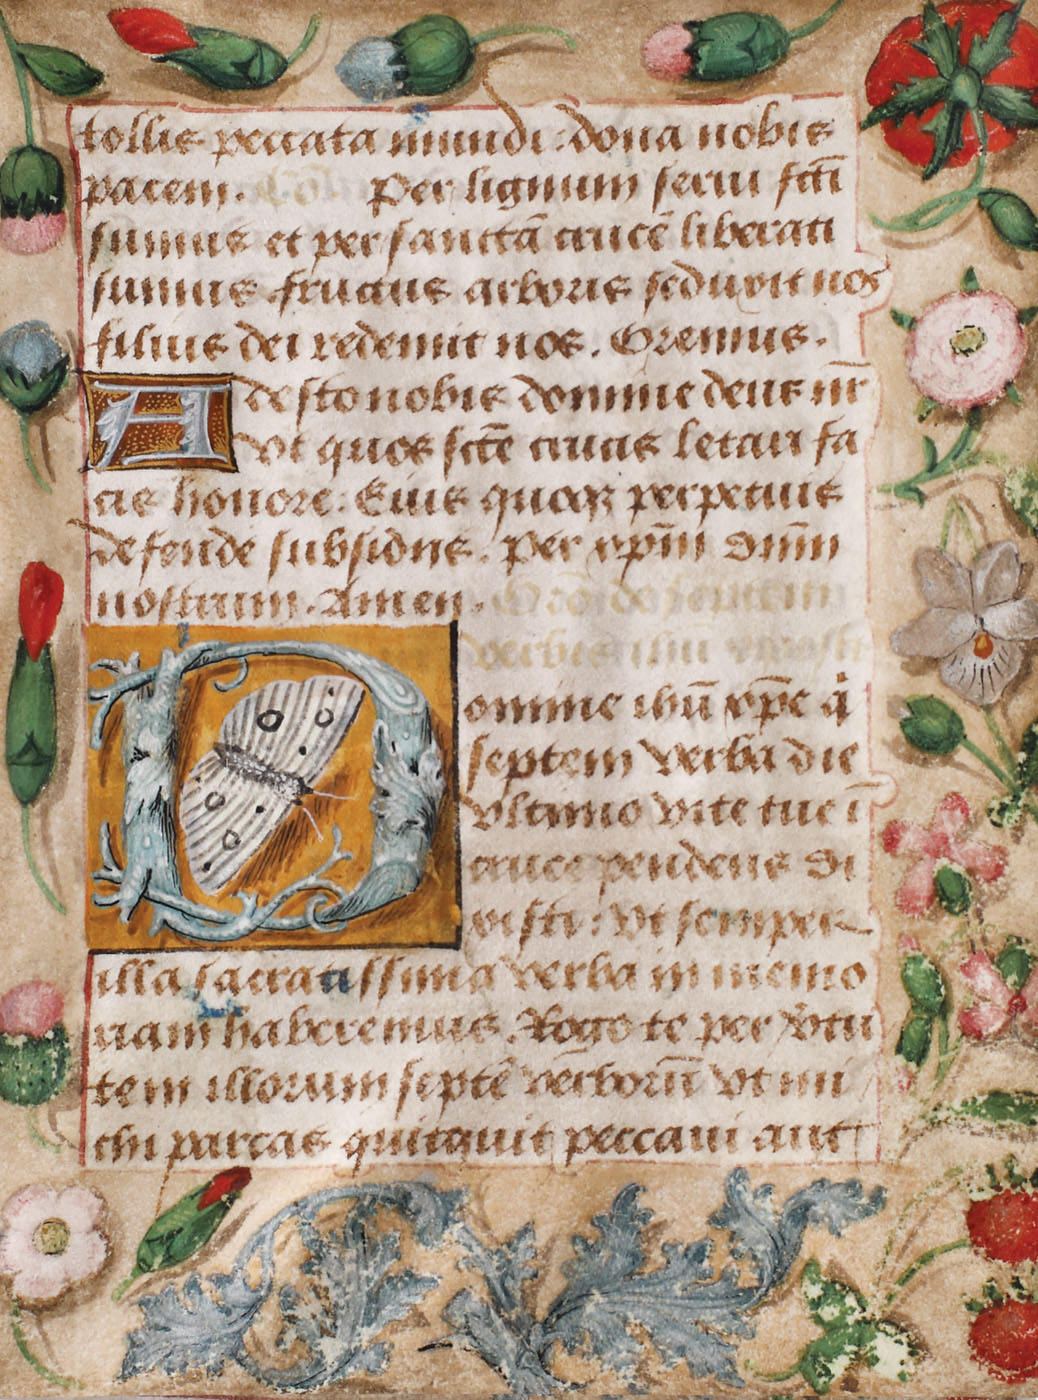 tollis peccata mundi: dona nobis
pacem. Per lignum serui fcti
sumus et per sanctā crucē liberati
sumus fructus arboris seduxit nos
filius dei redemit nos. Oremus.
Adesto nobis domine deus nr̄
vt quos scte crucis letari fa
cis honore: Eius quoqꝫ perpetuis
defende subsidijs. Per xpm̄ dnm̄
nostrum. Amen.
Domine ihū xpē q̇
septem verba die
vltimo vite tue ī
cruce pendens di
xisti: vt semper
illa sacratissima verba in memo
riam haberemus. Rogo te per v̇tu
tem illorum septē verborū vt mi
chi parcas quitquit peccaui aut